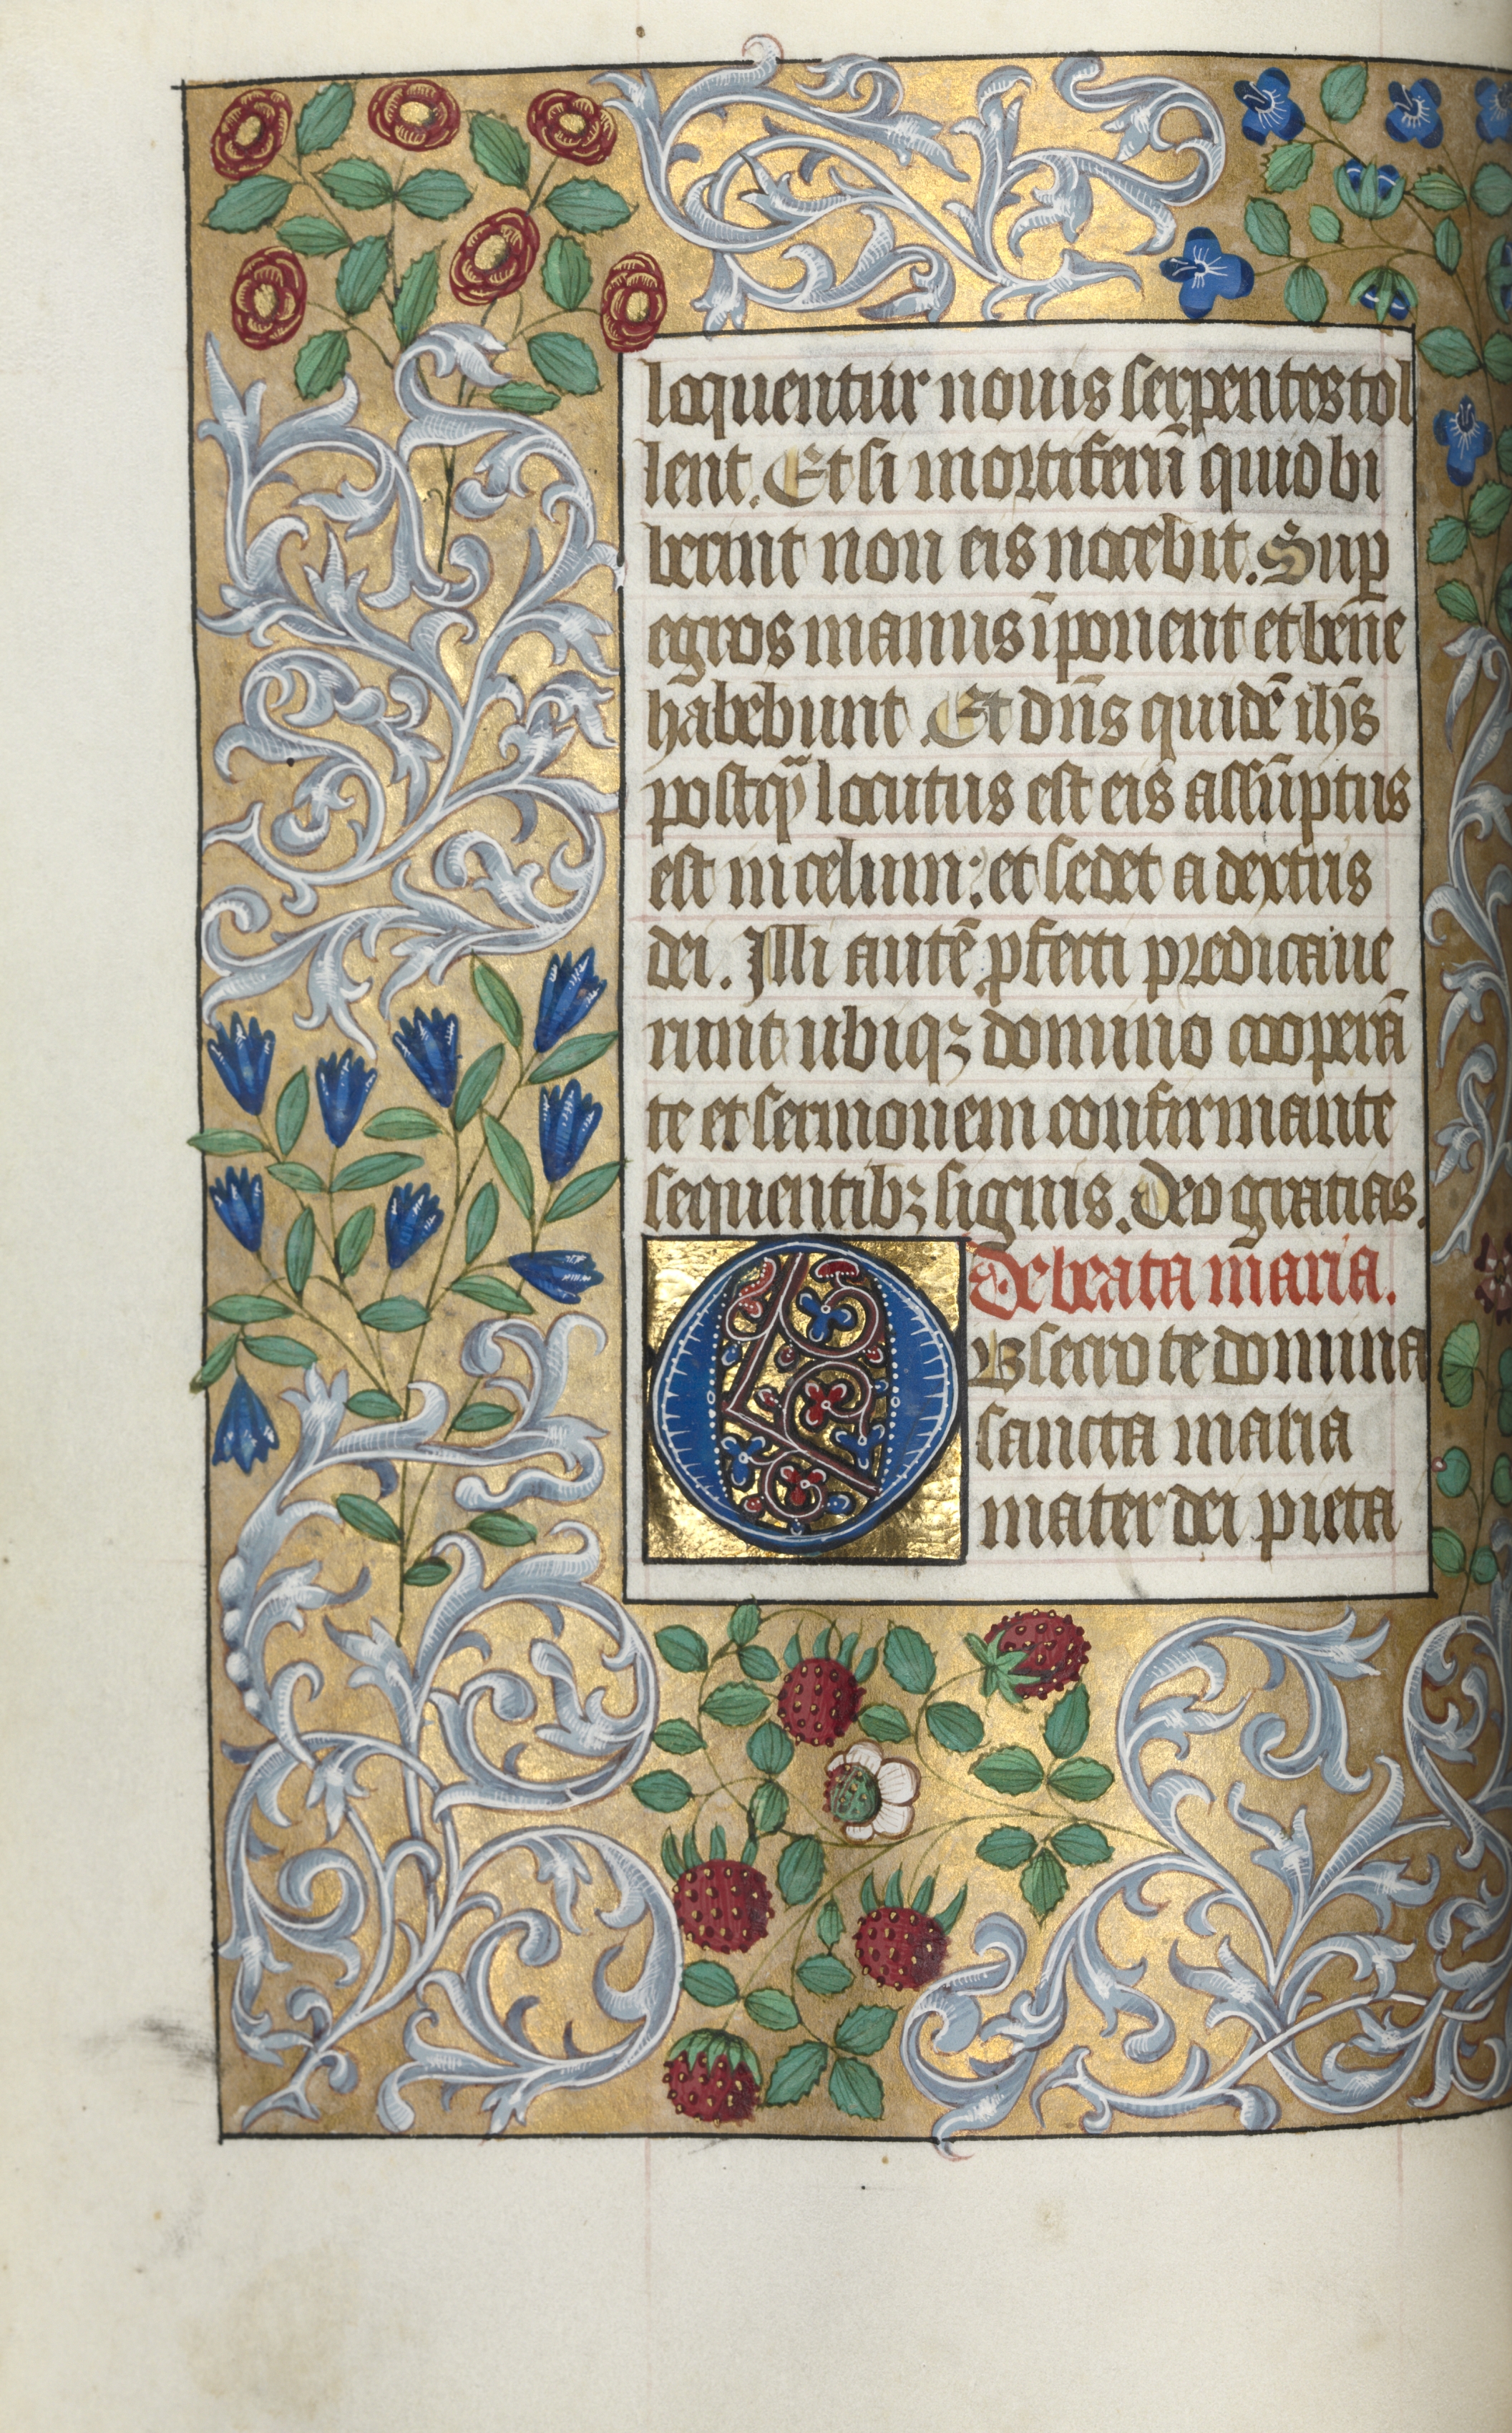 loquentur nouis serpentes tol
lent. Et si mortiferū quid bi
berint non eis nocebit. Sup
egros manus īponent et bene
habebunt. Et dn̄s quidē ih̄s
postq̄ locutus est eis assūptus
est in celum: et sedet a dextris
dei. Illi autē pfecti predicaue
runt ubiqꝫ domino cooperā
te et sermonem confirmante
sequentibꝫ signis. Deo gratias.
De beata maria.
OBsecro te domina
sancta maria
mater dei pieta